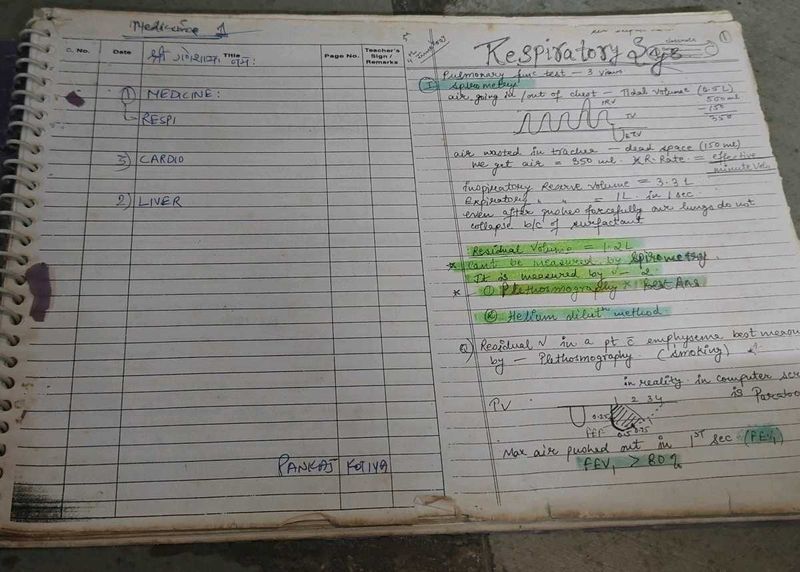 Medicine 1
C. No. Date Title Page No. Teacher's Sign / Remarks
श्री गणेशाय नमः
1) MEDICINE:
RESPI
3) CARDIO
2) LIVER
PANKAJ KOTIYA
1
Respiratory Sys
Pulmonary func test – 3 Views
I Spirometry
air going in/out of chest – Tidal volume (0.5L)
500ml
-150
350
IRV
TV
ERV
air wasted in trachea – dead space (150 ml)
we get air = 350 ml. × R. Rate. = effective
minute Vol.
Inspiratory Reserve Volume = 3.3L
Expiratory " " = 1L in 1 sec.
even after pushes forcefully our lungs do not
collapse b/c of surfactant
Residual Volume = 1.2L
* Cant be measured by Spirometry.
It is measured by – 2
* 1) Plethosmography * Best Ans
2) Helium dilutn method
Q) Residual V in a pt c̄ emphysema best measu
by – Plethosmography. (smoking)
in reality in computer scr
is Parabo
PV
1 2 3 4
0.25
0.5 0.75
Max air pushed out in 1ST sec (FEV1)
FEV1 > 80%